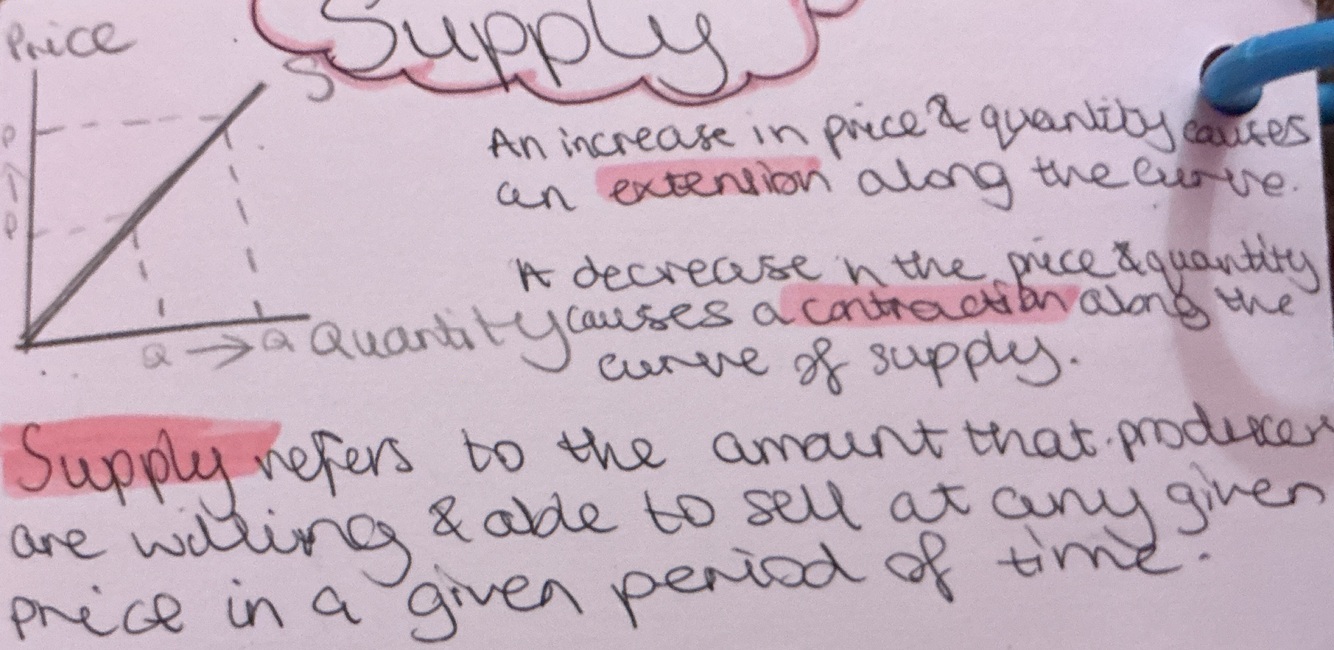 Supply
Price
S
P
↑
P
Q → Q Quantity
An increase in price & quantity causes
an extension along the curve.
A decrease n the price & quantity
causes a contraction along the
curve of supply.
Supply refers to the amount that producers
are willing & able to sell at any given
price in a given period of time.